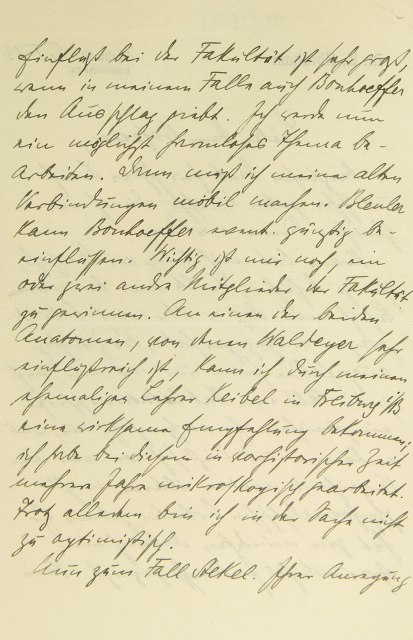 Einfluß bei der Fakultät ist sehr groß,
wenn in meinem Falle auch Bonhoeffer
den Ausschlag giebt. Ich werde nun
ein möglichst harmloses Thema be-
arbeiten. Dann muß ich meine alten
Verbindungen mobil machen. Bleuler
kann Bonhoeffer event. günstig be-
einflussen. Wichtig ist nur noch, ein
oder zwei andre Mitglieder der Fakultät
zu gewinnen. An einen der beiden
Anatomen, von denen Waldeyer sehr
einflußreich ist, kann ich durch meinen
ehemaligen Lehrer Keibel in Freiburg i/B
eine wirksame Empfehlung bekommen;
ich habe bei diesem in vorhistorischer Zeit
mehrere Jahre mikroskopisch gearbeitet.
Trotz alledem bin ich in der Sache nicht
zu optimistisch.
Nun zum Fall Aekel. Ihrer Anregung